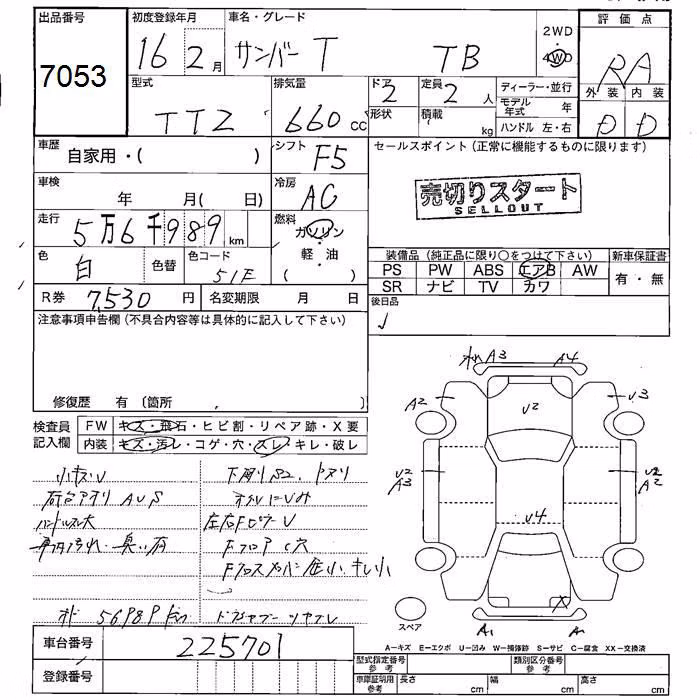 出品番号
7053
初度登録年月
16 2月
車名・グレード
サンバー T TB
2WD
4WD
評価点
RA
外装 内装
D D
型式
TT2
排気量
660 cc
ドア
2
形状
定員
2 人
積載
kg
ディーラー・並行
モデル年式 年
ハンドル 左・右
車歴
自家用・( )
シフト
F5
セールスポイント (正常に機能するものに限ります)
売切りスタート
SELLOUT
車検
年 月( 日)
冷房
AC
走行
5万6千989 km
燃料
ガソリン
・
軽・油
( )
色
白
色替
色コード
51E
装備品 (純正品に限り○をつけて下さい)
新車保証書
PS PW ABS エアB AW
SR ナビ TV カワ
有・無
R券 7,530 円
名変期限 月 日
後日品
注意事項申告欄 (不具合内容等は具体的に記入して下さい)
修復歴 有 (箇所 )
検査員
記入欄
FW キズ・飛石・ヒビ割・リペア跡・X要
内装 キズ・汚レ・コゲ・穴・スレ・キレ・破レ
小キズU
荷台アオリ AUS
ハンドルスレ大
車内汚れ・臭い有
下廻りS2、
左右Fピラー U
Fフロア C穴
56989 km
A3 A4
A2
U3
U2
U2
A3
U2
A2
U4
X
A1
スペア
A-キズ E-エクボ U-凹み W-補修跡 S-サビ C-腐食 XX-交換済
車台番号 225701
登録番号
型式指定番号
参考
類別区分番号
参考
車庫証明用
参考
長さ cm 幅 cm 高さ cm